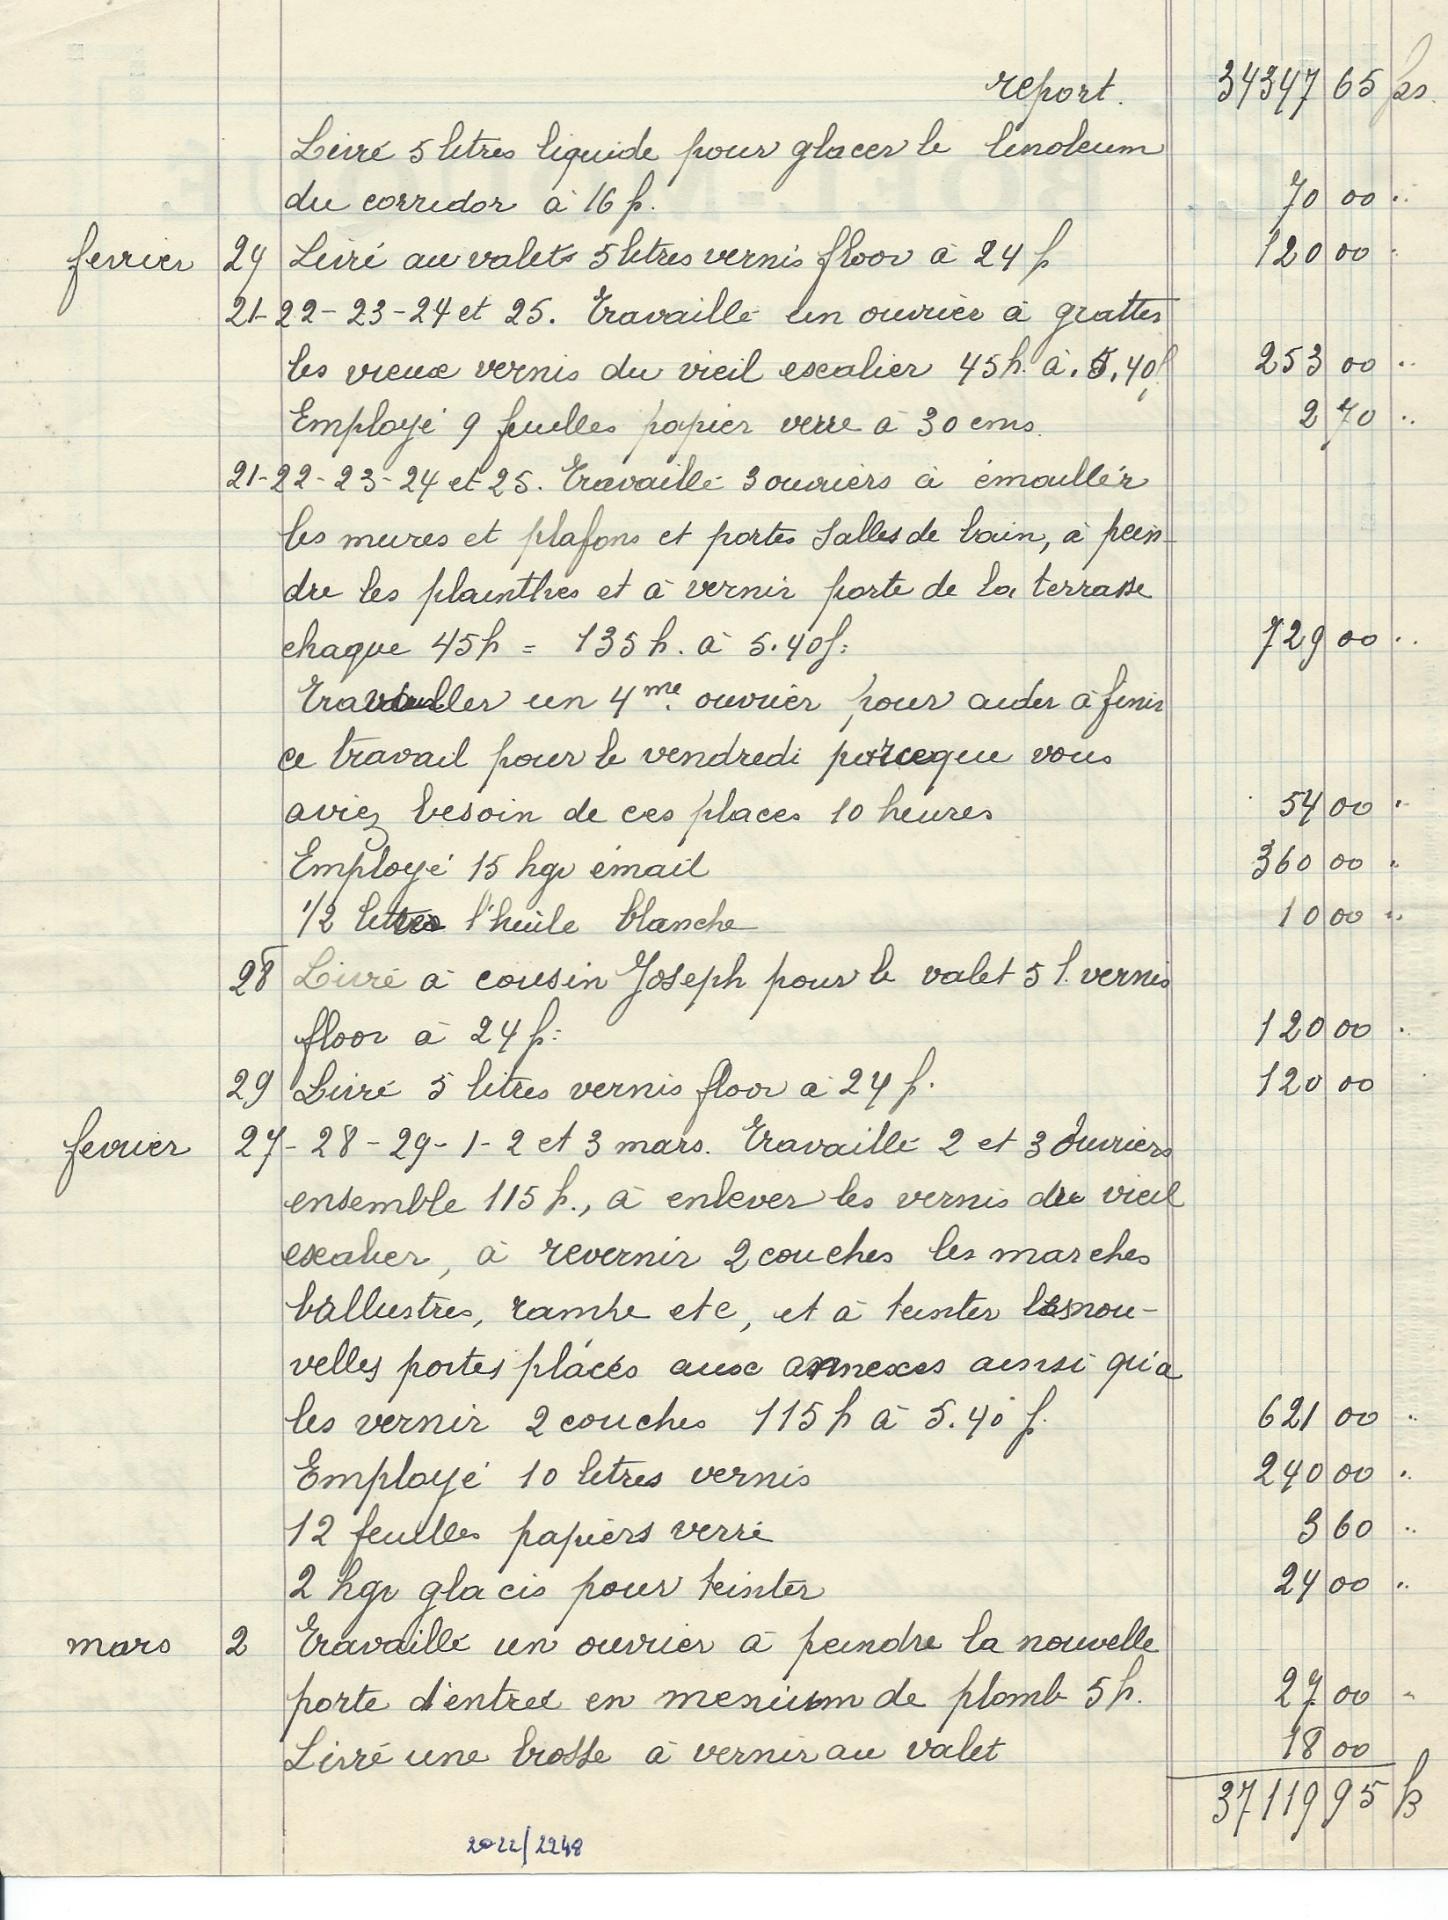 report. 34347 65 frs.
Livré 5 litres liquide pour glacer le linoleum
du corridor à 16 f. 70 00 "
fevrier 24 Livré au valet 5 litres vernis floor à 24 f 120 00 "
21-22-23-24 et 25. Travaillé un ouvrier à gratter
les vieux vernis du vieil escalier 45h. à 5.40f 253 00 "
Employé 9 feuilles papier verre à 30 cms. 2 70 "
21-22-23-24 et 25. Travaillé 3 ouvriers à émailler
les mures et plafons et portes salles de bain, à pein-
dre les plainthes et à vernir porte de la terrasse
chaque 45h = 135 h. à 5.40f. 729 00 "
Travailler un 4me ouvrier pour aider à finir
ce travail pour le vendredi parceque vous
aviez besoin de ces places 10 heures 54 00 "
Employé 15 kgr émail 360 00 "
1/2 litres l'huile blanche 10 00 "
28 Livré à cousin Joseph pour le valet 5 l. vernis
floor à 24 f. 120 00 "
29 Livré 5 litres vernis floor à 24 f. 120 00
fevrier 27-28-29-1-2 et 3 mars. Travaillé 2 et 3 ouvriers
ensemble 115 h., à enlever les vernis du vieil
escalier, à revernir 2 couches les marches
ballustres, rampe etc, et à teinter les nou-
velles portes placés aux annexes ainsi qu'à
les vernir 2 couches 115 h à 5.40 f. 621 00 "
Employé 10 litres vernis 240 00 "
12 feuilles papiers verre 3 60 "
2 kgr glacis pour teinter 24 00 "
mars 2 Travaillé un ouvrier à peindre la nouvelle
porte d'entrée en menium de plomb 5 h. 27 00 "
Livré une brosse à vernir au valet 18 00
37119 95 fr
2022/2248